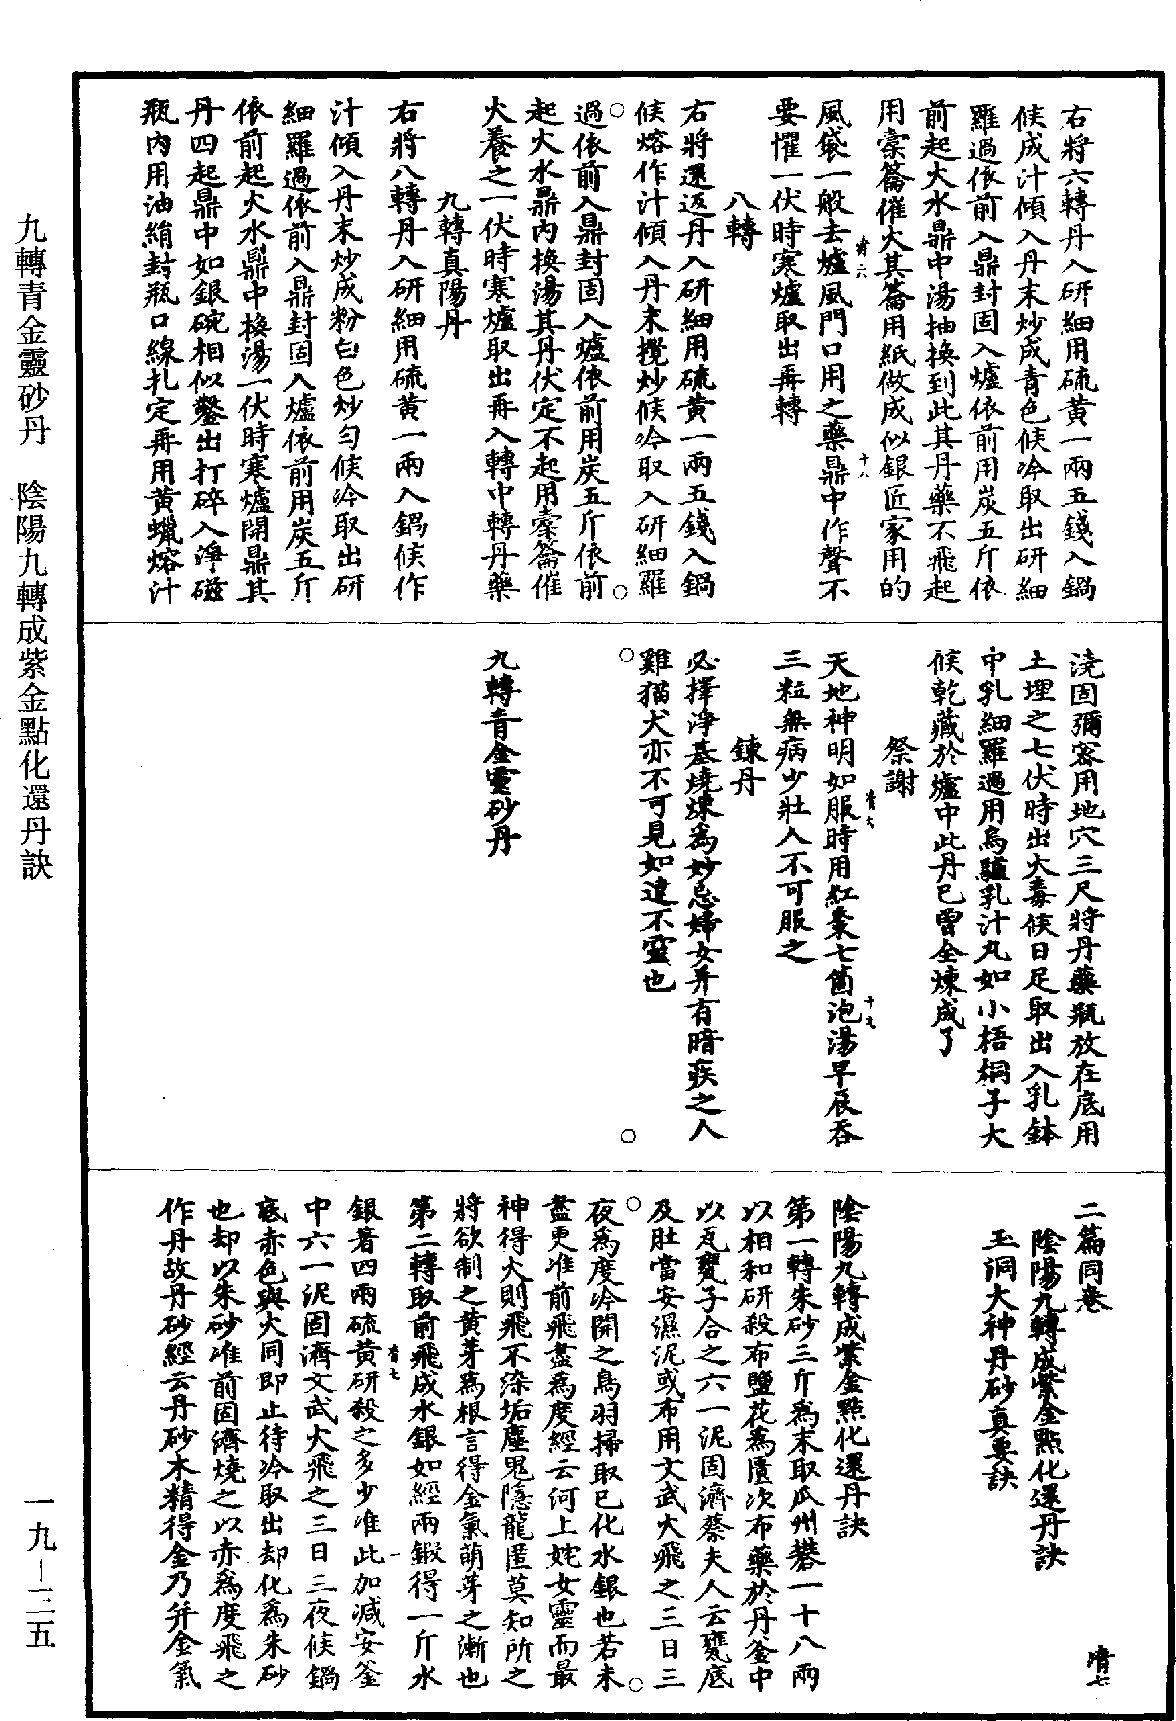 右將六轉丹入研細用硫黃一兩五錢入鍋
候成汁傾入丹末炒成青色候冷取出研細
羅過依前入鼎封固入爐依前用炭五斤依
前起火水鼎中湯抽換到此其丹藥不飛起
用橐籥催火其籥用紙做成似銀匠家用的
風袋一般去爐風門口用之藥鼎中作聲不
要懼一伏時寒爐取出再轉
八轉
右將還返丹入研細用硫黃一兩五錢入鍋
候熔作汁傾入丹末攪炒候冷取入研細羅
過依前入鼎封固入爐依前用炭五斤依前
起火水鼎內換湯其丹伏定不起用橐籥催
火養之一伏時寒爐取出再入轉中轉丹藥
九轉真陽丹
右將八轉丹入研細用硫黃一兩入鍋候作
汁傾入丹末炒成粉白色炒勻候冷取出研
細羅過依前入鼎封固入爐依前用炭五斤
依前起火水鼎中換湯一伏時寒爐開鼎其
丹四起鼎中如銀碗相似鑿出打碎入淨磁
瓶內用油絹封瓶口線扎定再用黃蠟熔汁
澆固彌密用地穴三尺將丹藥瓶放在底用
土埋之七伏時出火毒候日足取出入乳鉢
中乳細羅過用烏驢乳汁丸如小梧桐子大
候乾藏於爐中此丹已曾全煉成了
祭謝
天地神明如服時用紅棗七箇泡湯早辰吞
三粒無病少壯人不可服之
鍊丹
必擇淨基燒煉為妙忌婦女并有暗疾之人
雞猫犬亦不可見如違不靈也
九轉青金靈砂丹
二篇同卷
陰陽九轉成紫金點化還丹訣
玉洞大神丹砂真要訣
清七
陰陽九轉成紫金點化還丹訣
第一轉朱砂三斤為末取瓜州礬一十八兩
以相和研殺布鹽花為匱次布藥於丹釜中
以瓦甕子合之六一泥固濟蔡夫人云甕底
及肚當安濕泥或布用文武火飛之三日三
夜為度冷開之鳥羽掃取已化水銀也若未
盡更准前飛盡為度經云河上姹女靈而最
神得火則飛不染垢塵鬼隱龍匿莫知所之
將欲制之黃芽為根言得金氣萌芽之漸也
第二轉取前飛成水銀如經兩鍛得一斤水
銀著四兩硫黃研殺之多少准此加減安釜
中六一泥固濟文武火飛之三日三夜候鍋
底赤色與火同即止待冷取出却化為朱砂
也却以朱砂准前固濟燒之以赤為度飛之
作丹故丹砂經云丹砂木精得金乃并金氣
九轉青金靈砂丹　陰陽九轉成紫金點化還丹訣
一九－一二五